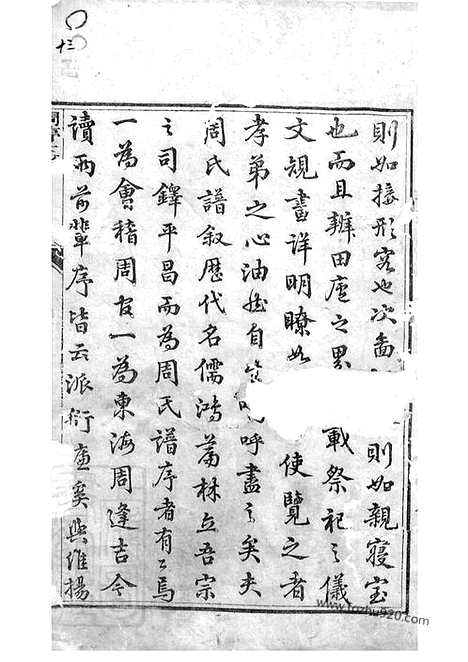 則如接形容也次畫則如親寢室
也而且辨田廬之界載祭祀之儀
文規畫詳明瞭如使覽之者
孝弟之心油然自呼盡之矣夫
周氏譜叙歷代名儒鴻篇林立吾宗
之司鐸平昌而為周氏譜序者有二焉
一為會稽周友一為東海周逢吉今
讀兩前輩序皆云派衍 奚與維揚
十三
www.fozhu920.com